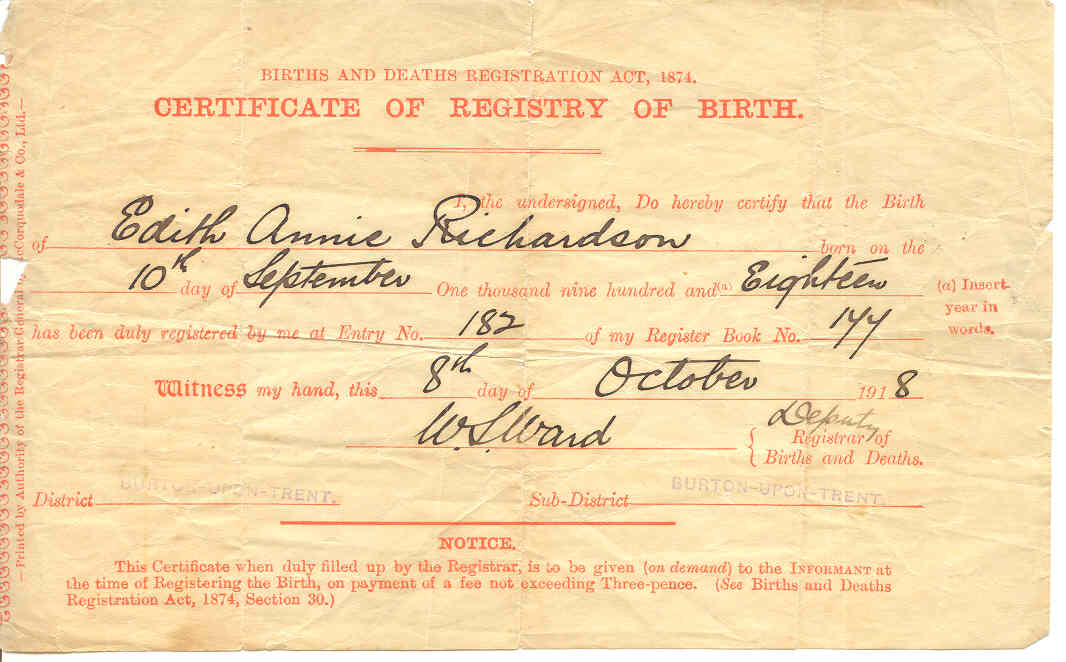 BIRTHS AND DEATHS REGISTRATION ACT, 1874.
CERTIFICATE OF REGISTRY OF BIRTH.
I, the undersigned, Do hereby certify that the Birth
of Edith Annie Richardson born on the
10th day of September One thousand nine hundred and (a) Eighteen
(a) Insert year in words.
has been duly registered by me at Entry No. 182 of my Register Book No. 177
Witness my hand, this 8th day of October 1918
W. S. Ward { Deputy Registrar of Births and Deaths.
District BURTON-UPON-TRENT. Sub-District BURTON-UPON-TRENT.
NOTICE.
This Certificate when duly filled up by the Registrar, is to be given (on demand) to the INFORMANT at
the time of Registering the Birth, on payment of a fee not exceeding Three-pence. (See Births and Deaths
Registration Act, 1874, Section 30.)
—Printed by Authority of the Registrar General McCorquodale & Co., Ltd.—